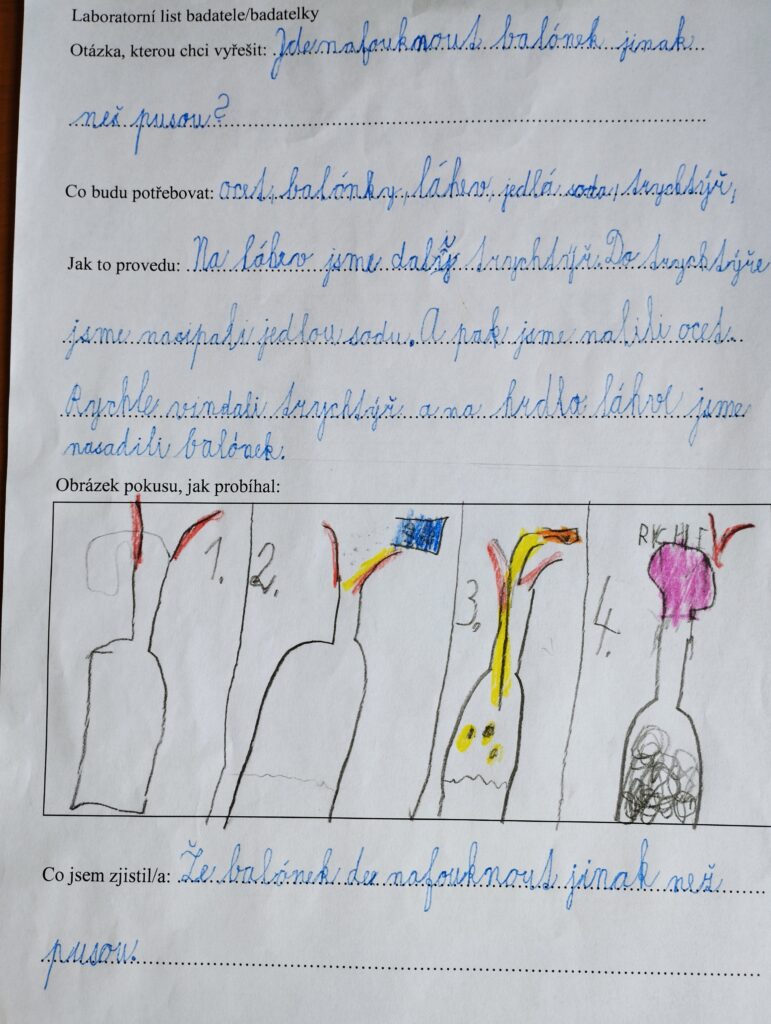 Laboratorní list badatele/badatelky
Otázka, kterou chci vyřešit: Jde nafouknout balónek jinak
než pusou?
Co budu potřebovat: ocet, balónky, láhev, jedlá soda, trychtýř,
Jak to provedu: Na láhev jsme dali trychtýř. Do trychtýře
jsme nasipali jedlou sodu. A pak jsme nalili ocet.
Rychle vindali trychtýř a na hrdlo láhve jsme
nasadili balónek.
Obrázek pokusu, jak probíhal:
1. 2. 3. 4. RYCHLE
Co jsem zjistil/a: Že balónek de nafouknout jinak než
pusou.